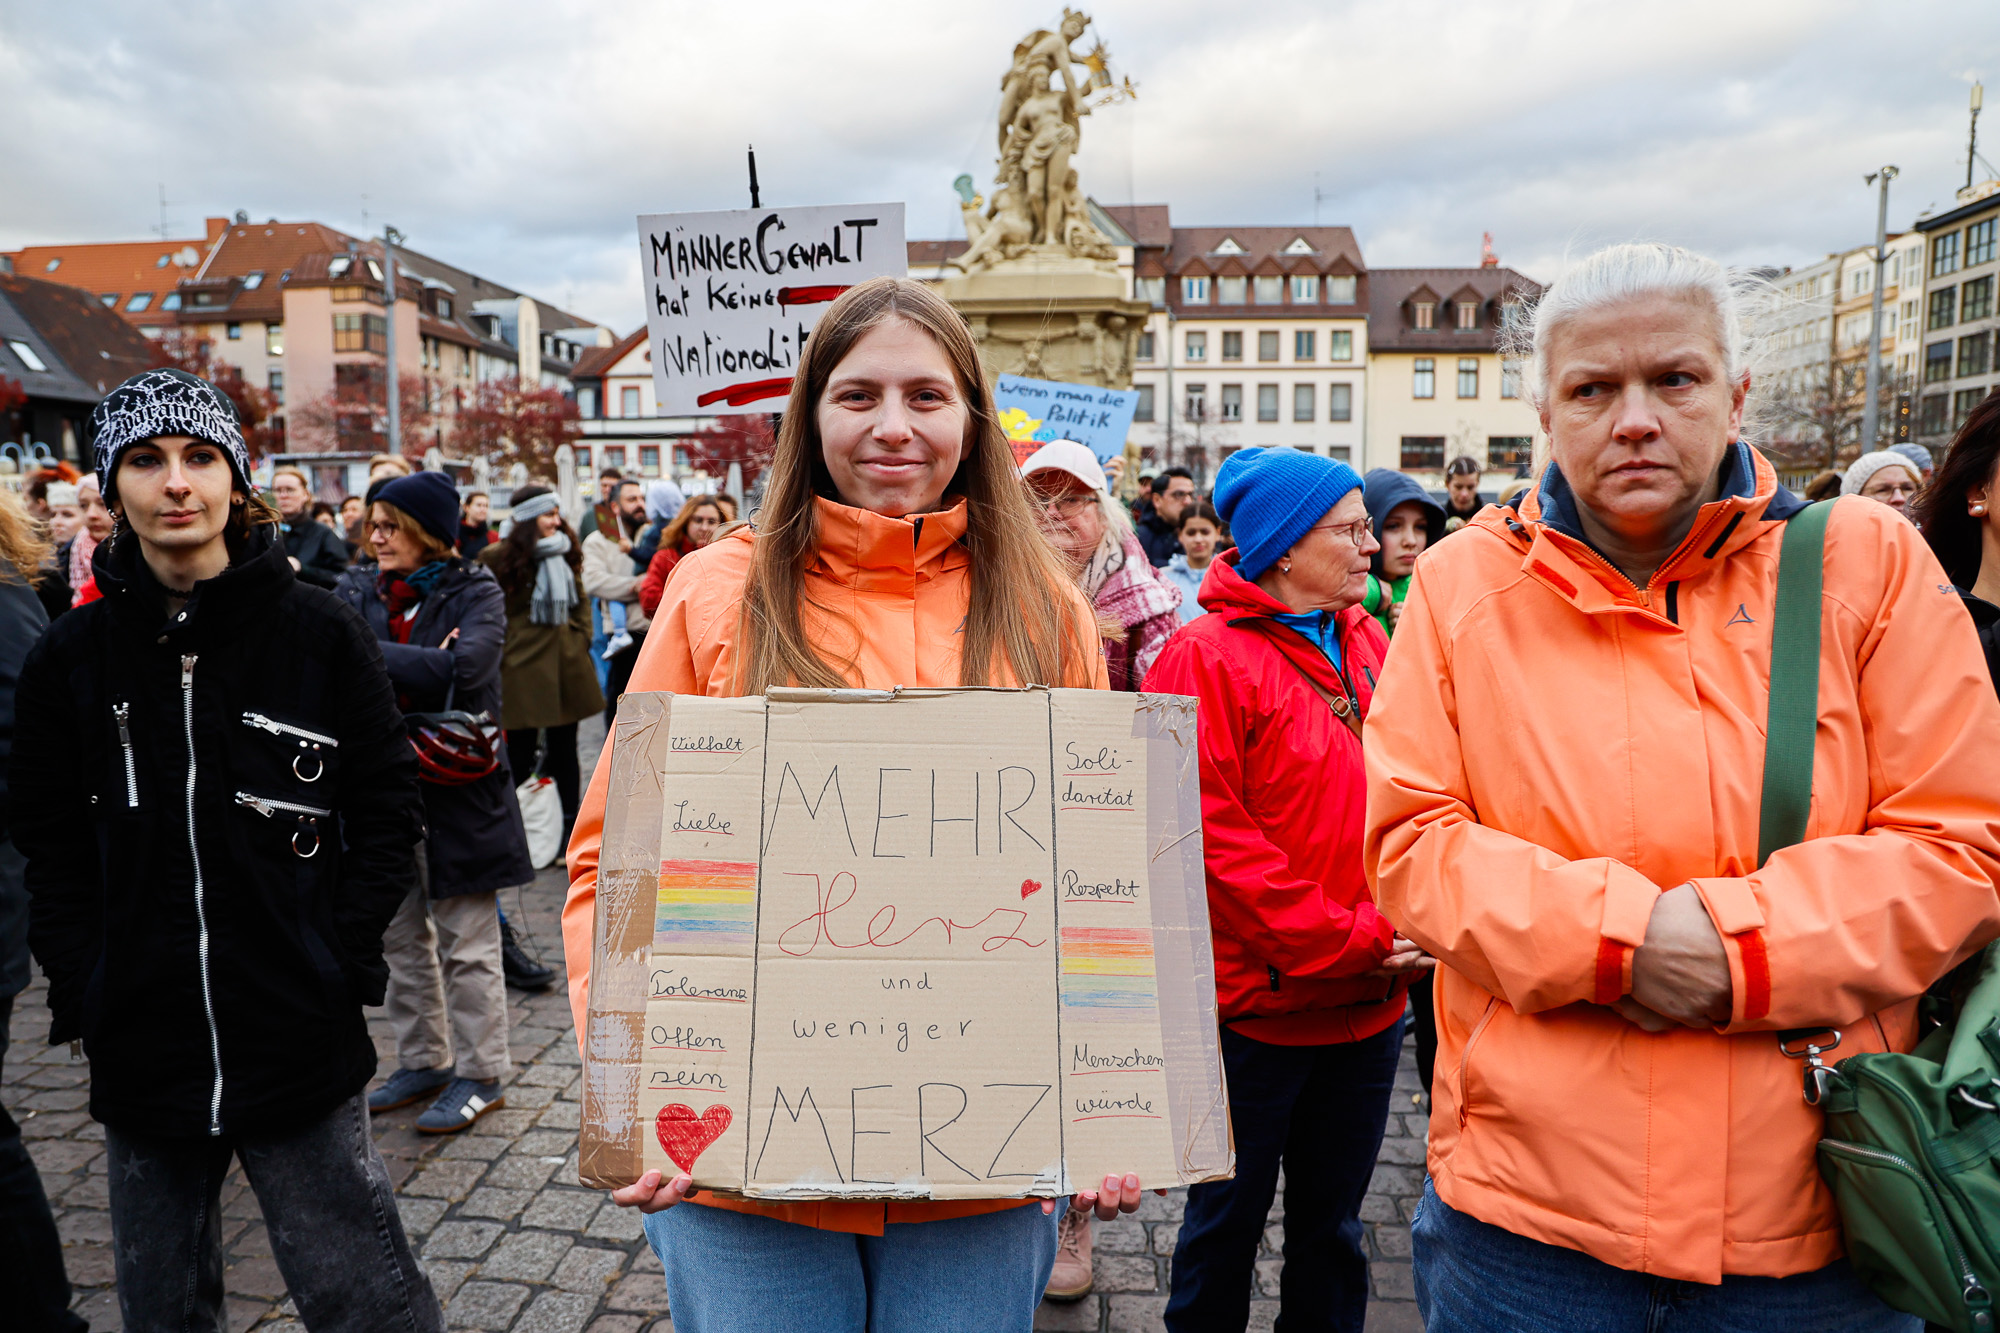 MÄNNERGEWALT
hat KEINE
NAtionaliT
Wenn man die
Politik
paranoid
Vielfalt
Liebe
Toleranz
Offen
sein
MEHR
Herz
und
weniger
MERZ
Soli-
darität
Respekt
Menschen
würde